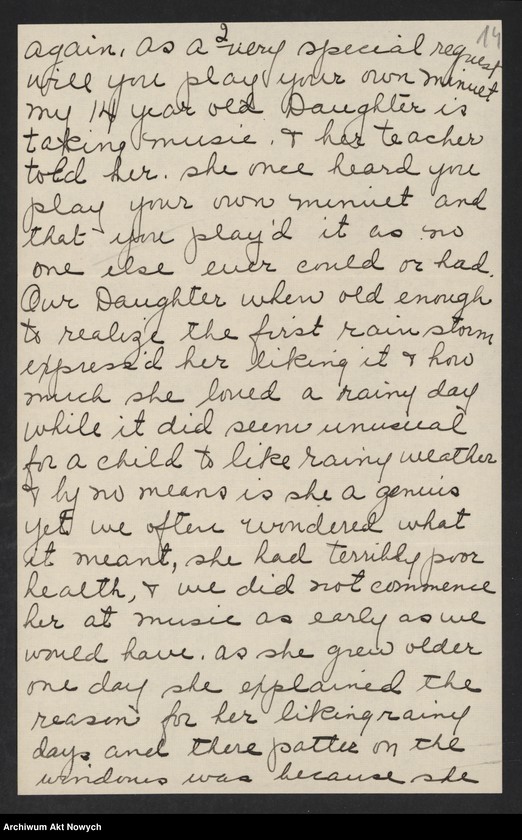 14
2
again, as a very special request
will you play your own minuet
my 14 year old Daughter is
taking music. & her teacher
told her. she once heard you
play your own minuet and
that you play'd it as no
one else ever could or had.
Our Daughter when old enough
to realize the first rain storm
express'd her liking it & how
much she loved a rainy day
while it did seem unusual
for a child to like rainy weather
& by no means is she a genius
yet we often wondered what
it meant, she had terribly poor
health, & we did not commence
her at music as early as we
would have. as she grew older
one day she explained the
reason for her liking rainy
days and there patter on the
windows was because she
Archiwum Akt Nowych